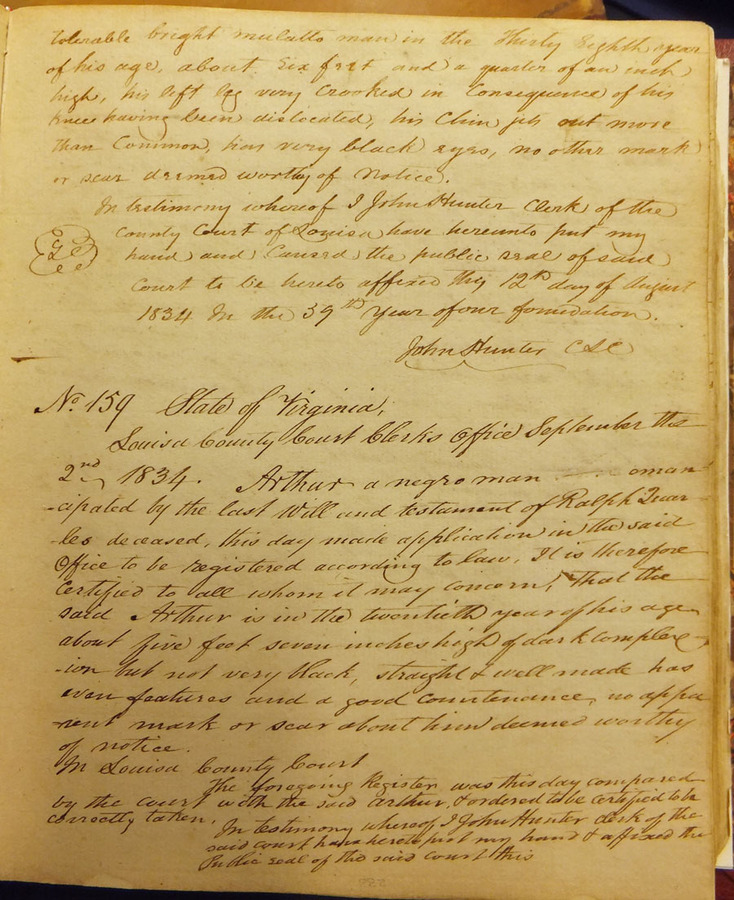 tolerable bright mulatto man in the Thirty Eighth year
of his age, about Six feet and a quarter of an inch
high, his left leg very Crooked in Consequence of his
knee having been dislocated, his Chin jets out more
than Common, has very black eyes, no other mark
or scar deemed worthy of Notice.
In testimony whereof I John Hunter Clerk of the
County Court of Louisa have hereunto put my
hand and Caused the public seal of said
Court to be hereto affixed this 12th day of August
1834 In the 59th Year of our foundation.
John Hunter CLC
No. 159 State of Virginia,
Louisa County Court Clerks Office September the
2nd 1834. Arthur a negro man eman
-cipated by the last Will and testament of Ralph Quar
-les deceased, this day made application in the said
Office to be registered according to law, It is therefore
Certified to all whom it may concern, that the
said Arthur is in the twentieth year of his age
about five feet seven inches high of dark complex
-ion but not very black, straight & well made has
even features and a good countenance, no appa
-rent mark or scar about him deemed worthy
of notice.
In Louisa County Court
The foregoing Register was this day compared
by the court with the said Arthur, & ordered to be certified to be
correctly taken.
In testimony whereof I John Hunter clerk of the
said court have hereto put my hand & affixed the
Public seal of the said court this